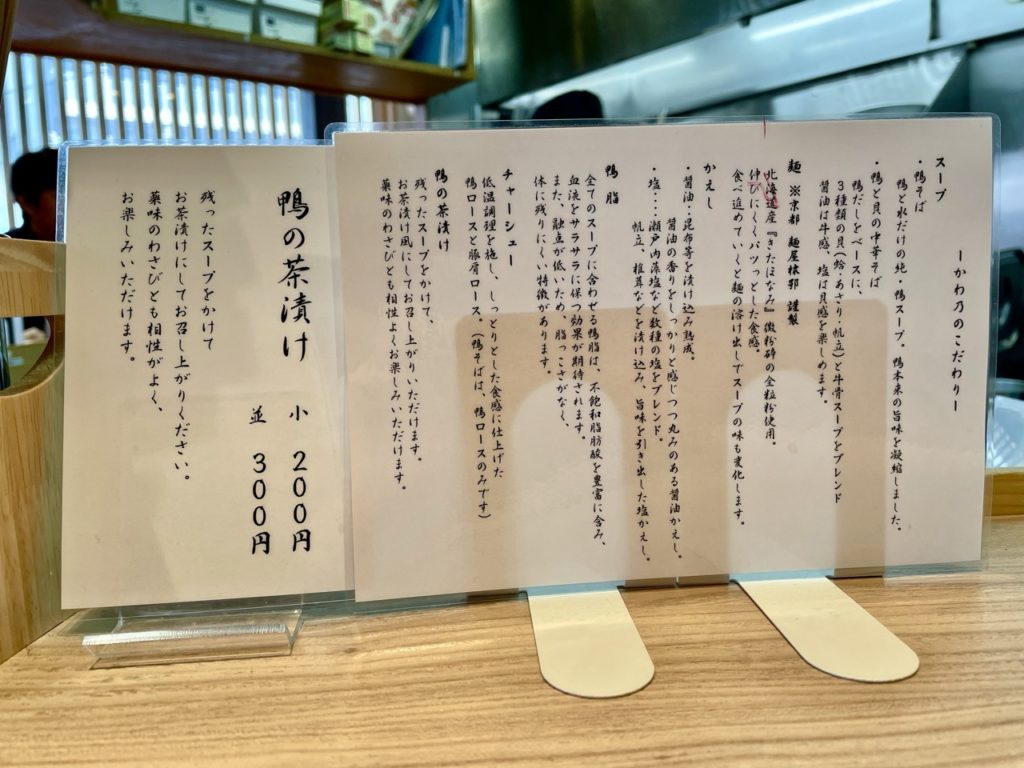 ーかわ乃のこだわりー
スープ
・鴨そば
鴨と水だけの純・鴨スープ。鴨本来の旨味を凝縮しました。
・鴨と貝の中華そば
鴨だしをベースに、
3種類の貝(蛤・あさり・帆立)と牛骨スープをブレンド
醤油は牛感、塩は貝感を楽しめます。
麺 ※京都 麺屋棣鄂 謹製
北海道産『きたほなみ』微粉砕の全粒粉使用。
伸びにくくパツっとした食感。
食べ進めていくと麺の溶け出しでスープの味も変化します。
かえし
・醤油‥昆布等を漬け込み熟成。
醤油の香りをしっかりと感じつつ丸みのある醤油かえし。
・塩‥‥瀬戸内藻塩など数種の塩をブレンド。
帆立、椎茸などを漬け込み、旨味を引き出した塩かえし。
鴨脂
全てのスープに合わせる鴨脂は、不飽和脂肪酸を豊富に含み、
血液をサラサラに保つ効果が期待されます。
また、融点が低いため、脂っこさがなく、
体に残りにくい特徴があります。
チャーシュー
低温調理を施し、しっとりとした食感に仕上げた
鴨ロースと豚肩ロース。(鴨そばは、鴨ロースのみです)
鴨の茶漬け
残ったスープをかけて、
お茶漬け風にしてお召し上がりいただけます。
薬味のわさびとも相性よくお楽しみいただけます。
鴨の茶漬け
小 200円
並 300円
残ったスープをかけて
お茶漬けにしてお召し上がりください。
薬味のわさびとも相性がよく、
お楽しみいただけます。